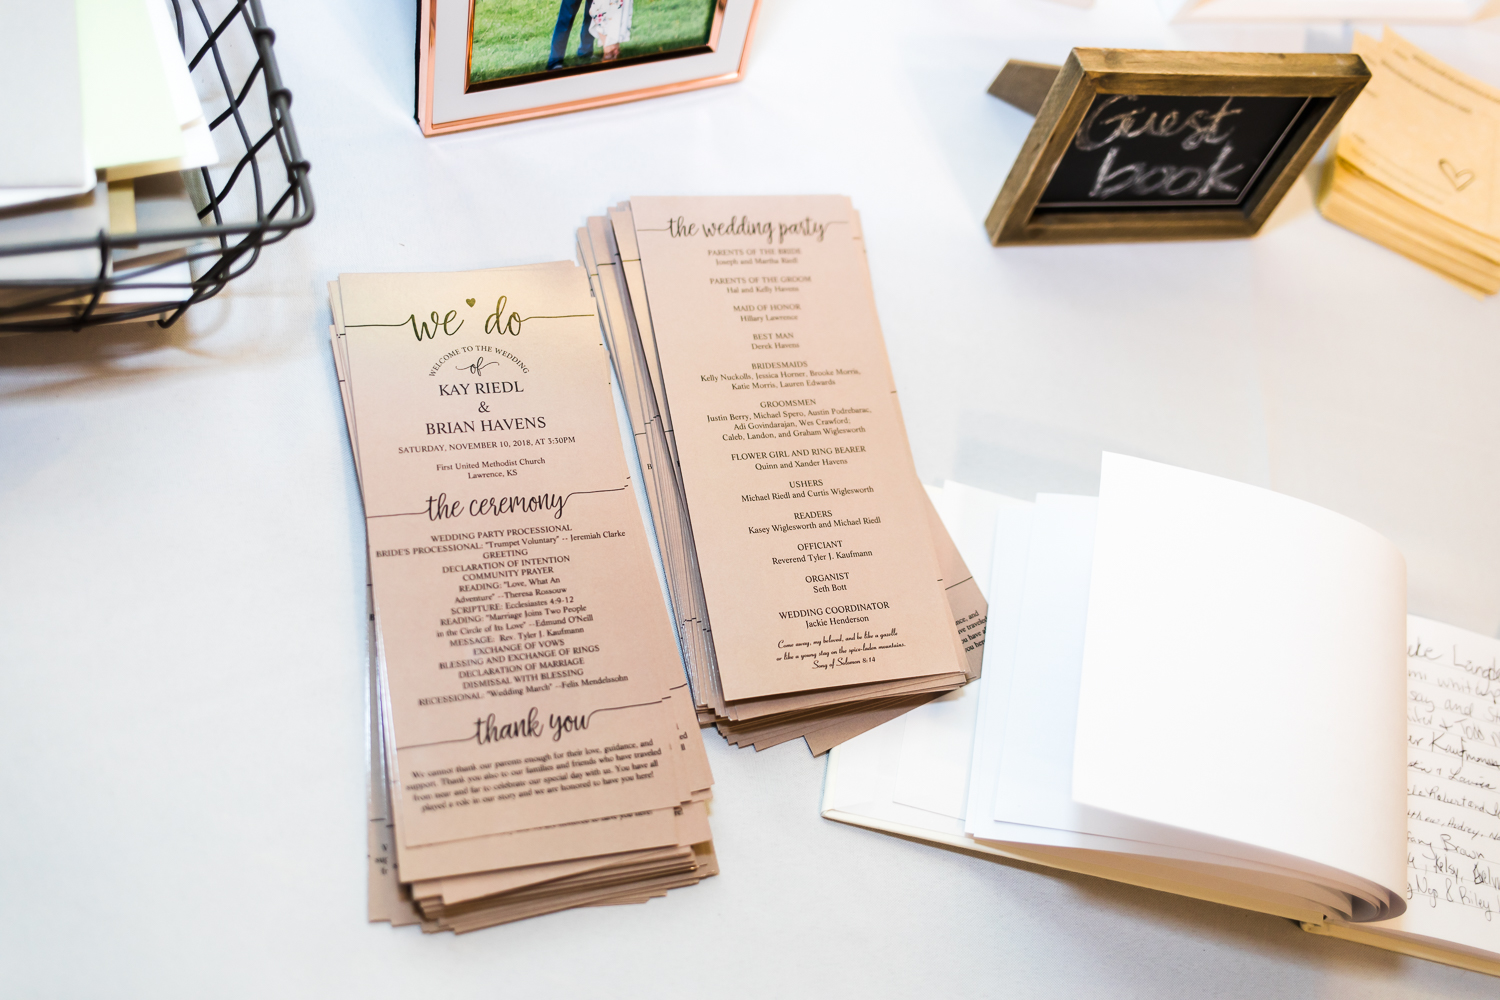 we do
WELCOME TO THE WEDDING
of
KAY RIEDL
&
BRIAN HAVENS
SATURDAY, NOVEMBER 10, 2018, AT 3:30PM
First United Methodist Church
Lawrence, KS
the ceremony
WEDDING PARTY PROCESSIONAL
BRIDE'S PROCESSIONAL: "Trumpet Voluntary" -- Jeremiah Clarke
GREETING
DECLARATION OF INTENTION
COMMUNITY PRAYER
READING: "Love, What An
Adventure" --Theresa Rossouw
SCRIPTURE: Ecclesiastes 4:9-12
READING: "Marriage Joins Two People
in the Circle of Its Love" --Edmund O'Neill
MESSAGE: Rev. Tyler J. Kaufmann
EXCHANGE OF VOWS
BLESSING AND EXCHANGE OF RINGS
DECLARATION OF MARRIAGE
DISMISSAL WITH BLESSING
RECESSIONAL: "Wedding March" --Felix Mendelssohn
thank you
We cannot thank our parents enough for their love, guidance, and
support. Thank you also to our families and friends who have traveled
from near and far to celebrate our special day with us. You have all
played a role in our story and we are honored to have you here!
the wedding party
PARENTS OF THE BRIDE
Joseph and Martha Riedl
PARENTS OF THE GROOM
Hal and Kelly Havens
MAID OF HONOR
Hillary Lawrence
BEST MAN
Derek Havens
BRIDESMAIDS
Kelly Nuckolls, Jessica Horner, Brooke Morris,
Katie Morris, Lauren Edwards
GROOMSMEN
Justin Berry, Michael Spero, Austin Podrebarac,
Adi Govindarajan, Wes Crawford,
Caleb, Landon, and Graham Wiglesworth
FLOWER GIRL AND RING BEARER
Quinn and Xander Havens
USHERS
Michael Riedl and Curtis Wiglesworth
READERS
Kasey Wiglesworth and Michael Riedl
OFFICIANT
Reverend Tyler J. Kaufmann
ORGANIST
Seth Bott
WEDDING COORDINATOR
Jackie Henderson
Come away, my beloved, and be like a gazelle
or like a young stag on the spice-laden mountains.
Song of Solomon 8:14
Guest
book
Brown
& Riley